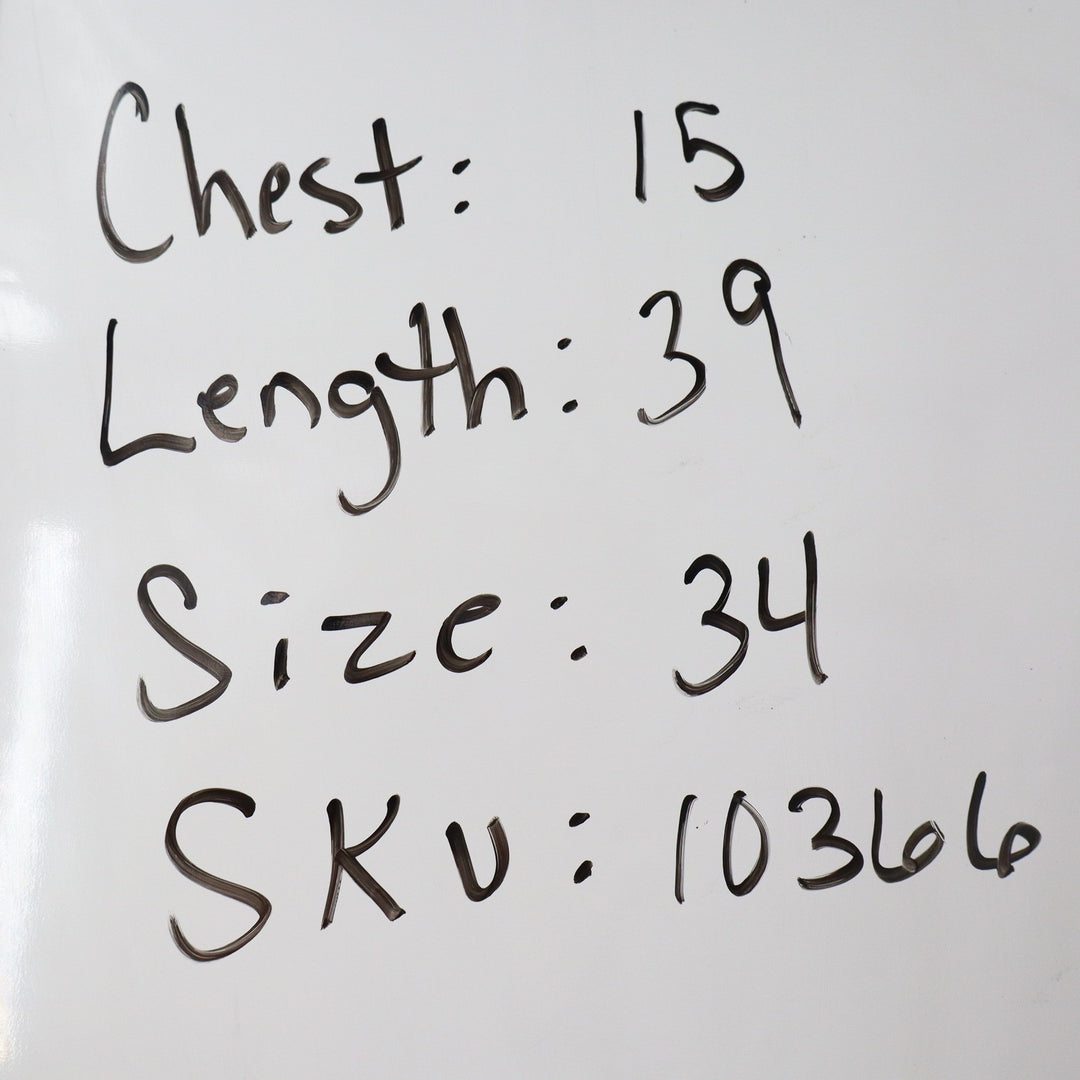 Chest: 15
Length: 39
Size: 34
SKU: 10366